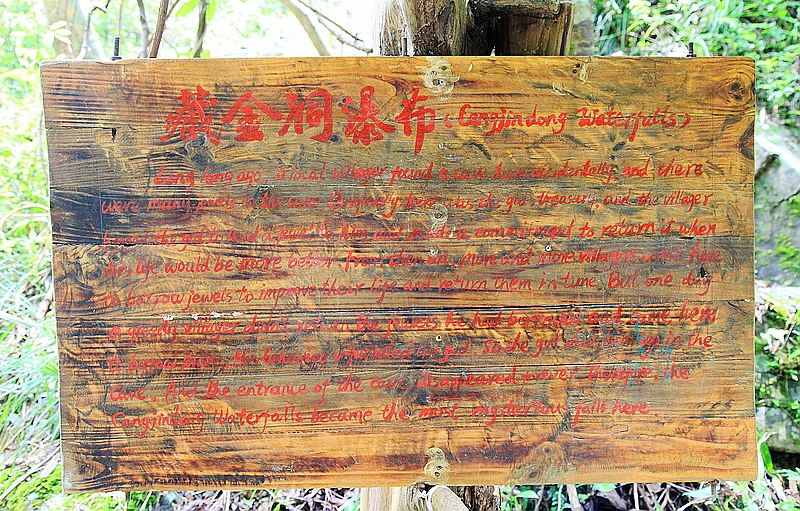 藏金洞瀑布 (Cangjindong Waterfalls)
Long long ago, a local villager found a cave here accidentally, and there
were many jewels in the cave. Originally, here was the god's treasury, and the villager
the god to lend a jewel to him and made a commitment to return it when
his life would be more better. From then on, more and more villagers came here
to borrow jewels to improve their life and return them in time. But one day
a greedy villager didn't return the jewels he had borrowed and came here
to borrow His behavior the god. So the god him up in the
cave. And the entrance of the cave disappeared forever. Therefore, the
Cangjindong Waterfalls became the most mysterious falls here.